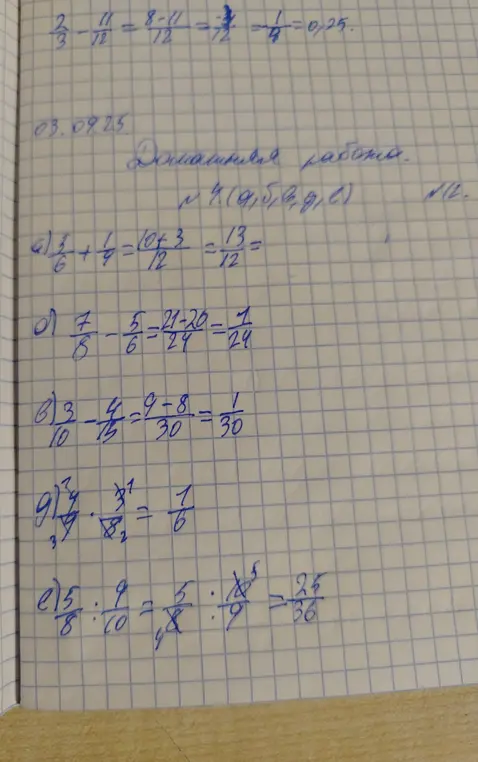 2/3 - 11/12 = 8-11/12 = -3/12 = 1/4 = 0,25.
03.09.25.
Домашняя работа.
№4.(а,б,в,д,е) №12.
а) 5/6 + 1/4 = 10+3/12 = 13/12 =
б) 7/8 - 5/6 = 21-20/24 = 1/24
в) 3/10 - 4/15 = 9-8/30 = 1/30
д) 4/9 · 3/8 = 1/6
е) 5/8 : 9/10 = 5/8 : 10/9 = 25/36